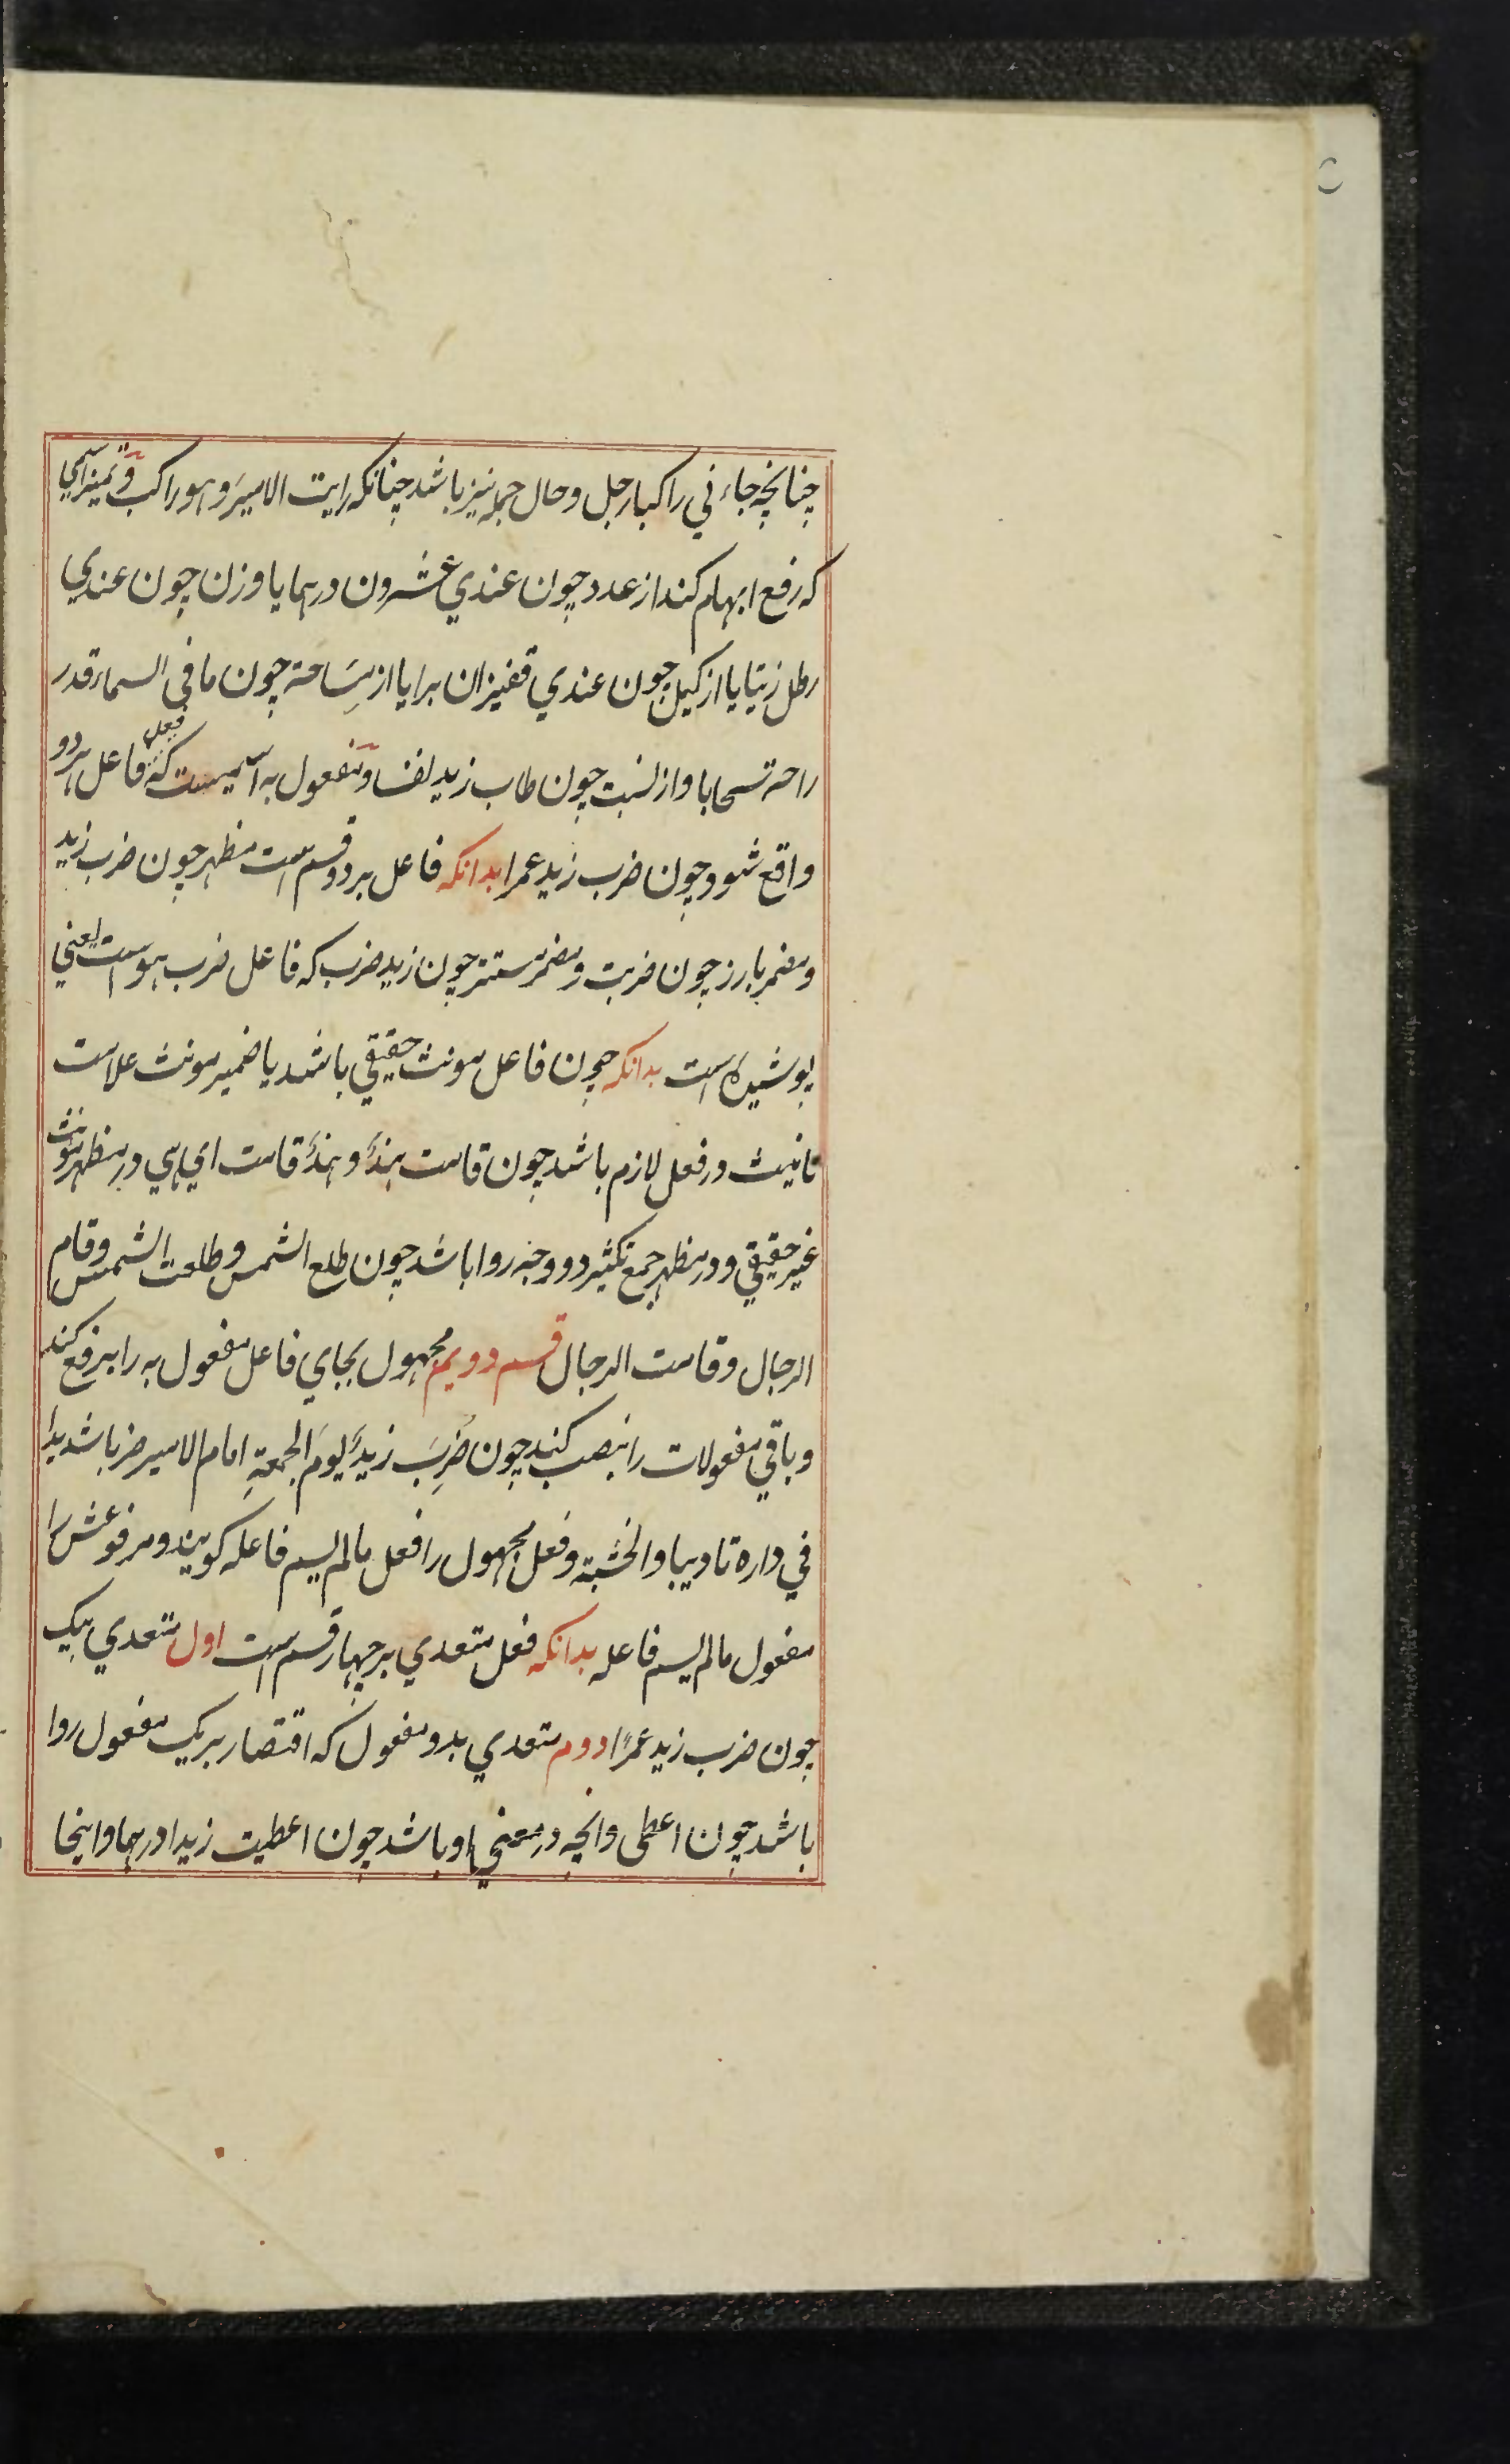 چنانچه جاءني راكبا رجل وحال جمله نيز باشد چنانكه رايت الاميرَ وهو راكب و تميز اسمي
كه رفع ابهام كند از عدد چون عندي عشرون درهما يا وزن چون عندي
رطل زيتا يا از كيل چون عندي قفيزان برا يا از مِسَاحة چون ما في السماء قدر
راحة سحابا و از نسبت چون طاب زيد نفسا و مفعول به اسميست كه فعل فاعل برو
واقع شود چون ضرب زيد عمرا بدانكه فاعل بر دو قسم است مظهر چون ضرب زيد
و مضمر بارز چون ضربت و مضمر مستتر چون زيد ضرب كه فاعل ضرب هو است يعني
پوشيده است بدانكه چون فاعل مونث حقيقي باشد يا ضمير مونث علامت
تانيث در فعل لازم باشد چون قامت هندٌ و هندٌ قامت اي هي و در مظهر مونث
غير حقيقي و در مظهر جمع تكثير دو وجه روا باشد چون طلع الشمس و طلعت الشمس و قام
الرجال و قامت الرجال قسم دويم مجهول بجاي فاعل مفعول به را برفع كند
و باقي مفعولات را بنصب كند چون ضُرِبَ زيدٌ يومَ الجمعةِ امام الامير ضربا شديدا
في داره تاديبا والخشبة و فعل مجهول را فعل مالم يسم فاعله كويند و مرفوعش را
مفعول مالم يسم فاعله بدانكه فعل متعدي بر چهار قسم است اول متعدي بيك
چون ضرب زيد عمرًا دوم متعدي بدو مفعول كه اقتصار بر يك مفعول روا
باشد چون اعطى وانچه در معني او باشد چون اعطيت زيدا درهما و اينجا